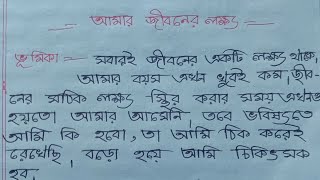 আমার জীবনের লক্ষ্য
ভূমিকা — সবারই জীবনের একটি লক্ষ্য থাকে,
আমার বয়স এখন খুবই কম, জীব-
নের সঠিক লক্ষ্য স্থির করার সময় এখনও
হয়তো আমার আসেনি, তবে ভবিষ্যতে
আমি কি হবো, তা আমি ঠিক করেই
রেখেছি, বড়ো হয়ে আমি চিকিৎসক
হব,